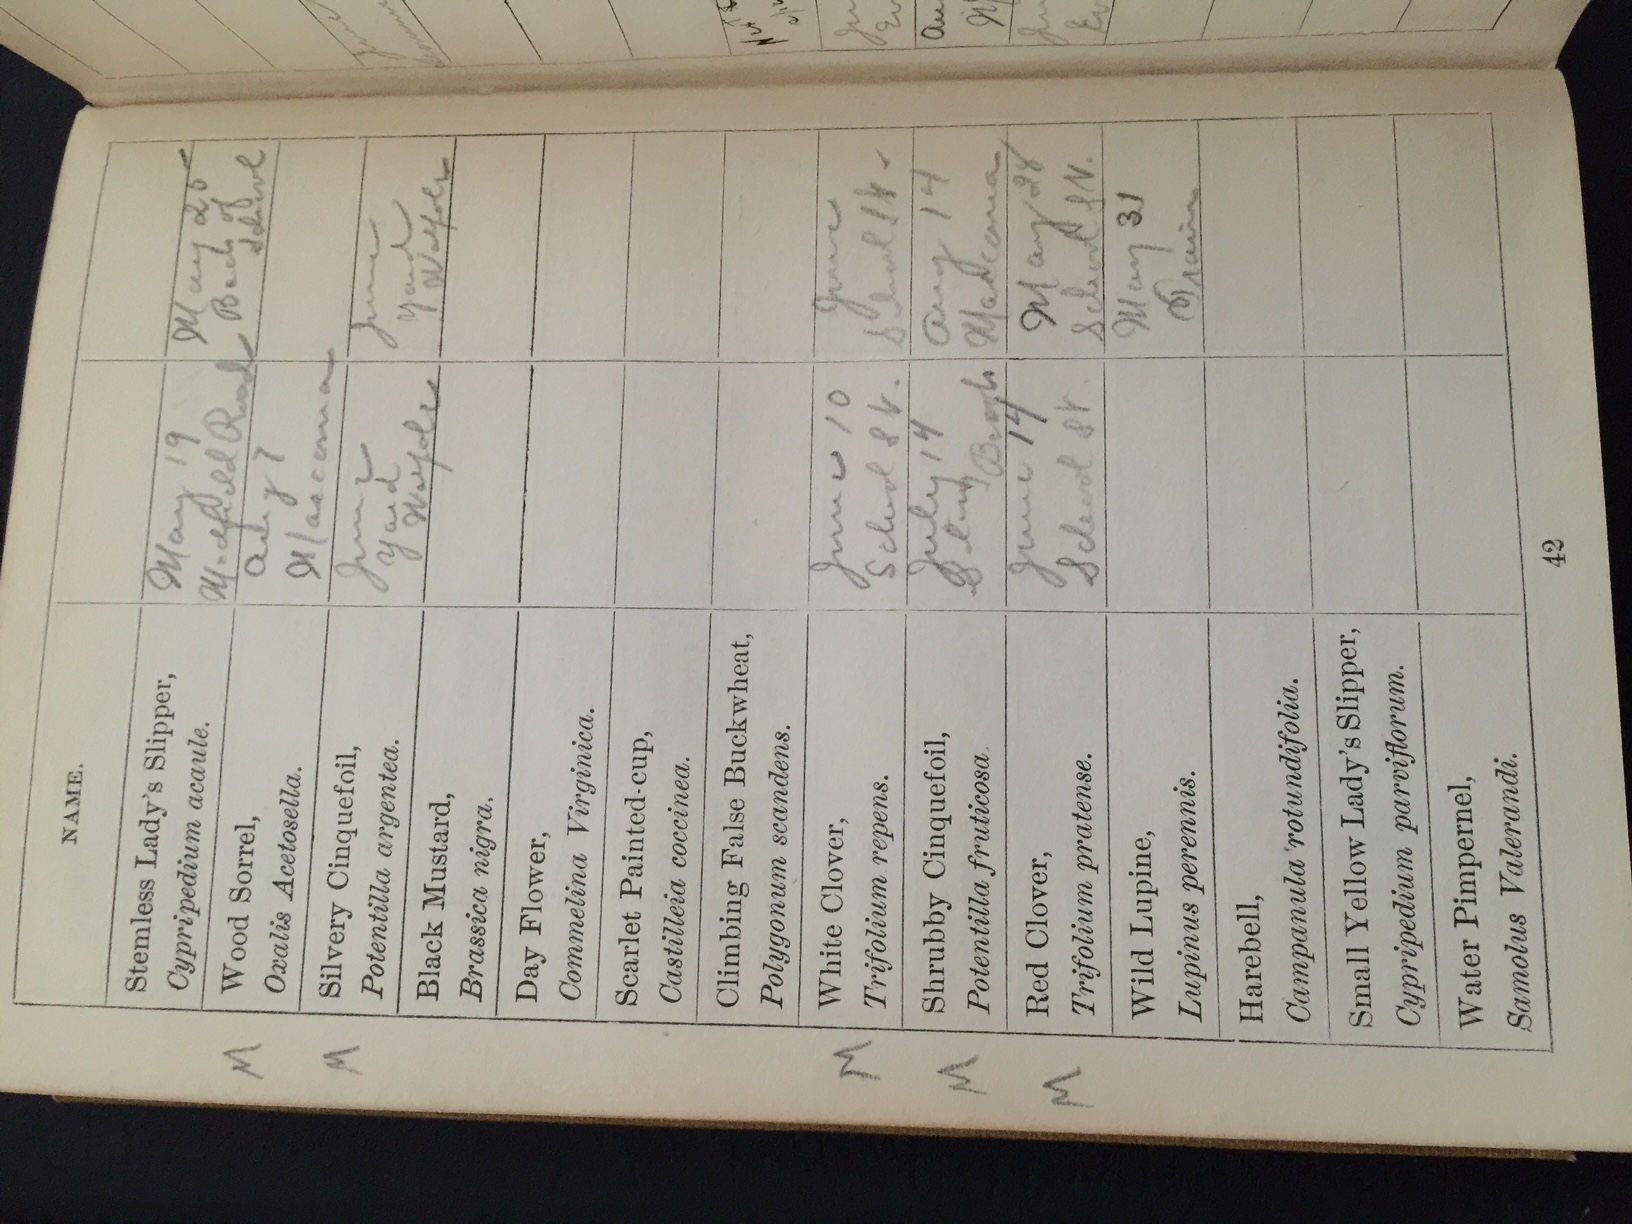 NAME.
Stemless Lady's Slipper,
Cypripedium acaule.
May 19
Medfield Road
May 25
Back of
School
Wood Sorrel,
Oxalis Acetosella.
Aug 7
Mascoma
Silvery Cinquefoil,
Potentilla argentea.
June
Yard
Walpole
June
Yard
Walpole
Black Mustard,
Brassica nigra.
Day Flower,
Commelina Virginica.
Scarlet Painted-cup,
Castilleia coccinea.
Climbing False Buckwheat,
Polygonum scandens.
White Clover,
Trifolium repens.
June 10
School St.
June
School St.
Shrubby Cinquefoil,
Potentilla fruticosa.
July 14
Brook
Aug 14
Mascoma
Red Clover,
Trifolium pratense.
June 14
School St.
May 28
School St.
Wild Lupine,
Lupinus perennis.
May 31
Harebell,
Campanula rotundifolia.
Small Yellow Lady's Slipper,
Cypripedium parviflorum.
Water Pimpernel,
Samolus Valerandi.
M
M
M
M
M
42